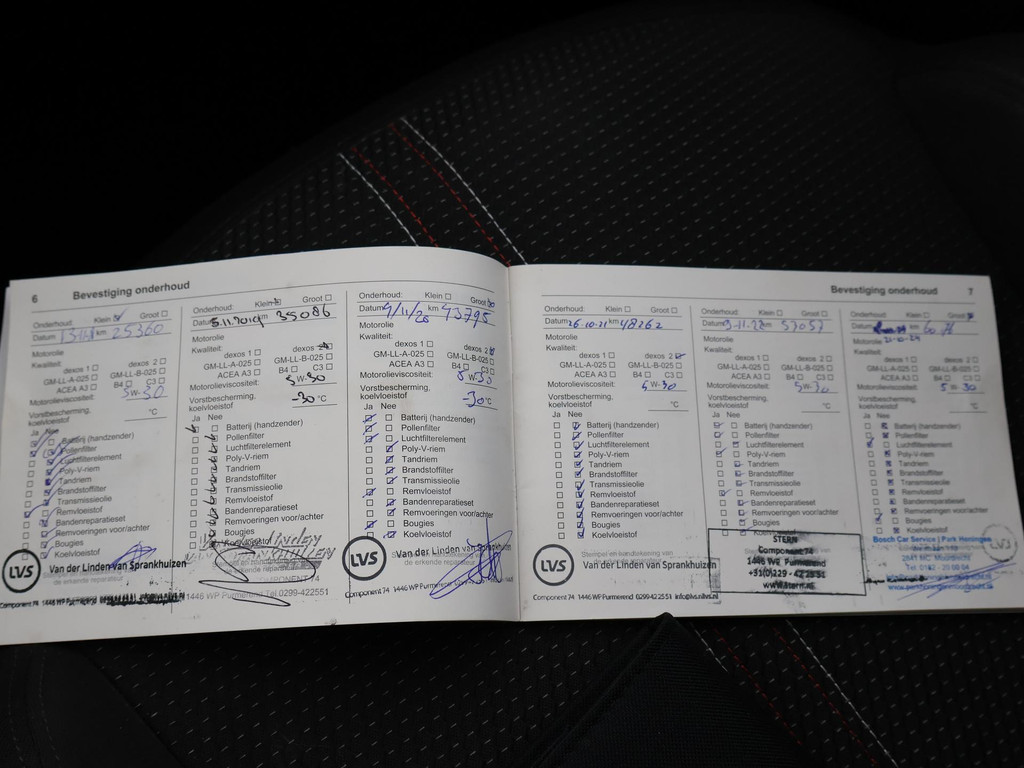 6 Bevestiging onderhoud
Onderhoud: Klein Groot
Datum km 25360
Motorolie
Kwaliteit:
dexos 1 dexos 2
GM-LL-A-025 GM-LL-B-025
ACEA A3 B4 C3
Motorolieviscositeit: 5W-30
Vorstbescherming, koelvloeistof °C
Ja Nee
Batterij (handzender)
Pollenfilter
Luchtfilterelement
Poly-V-riem
Tandriem
Brandstoffilter
Transmissieolie
Remvloeistof
Bandenreparatieset
Remvoeringen voor/achter
Bougies
Koelvloeistof
LVS Van der Linden van Sprankhuizen
Component 74 1446 WP Purmerend
Onderhoud: Klein Groot
Datum 5.11.2019 km 35086
Motorolie
Kwaliteit:
dexos 1 dexos 2
GM-LL-A-025 GM-LL-B-025
ACEA A3 B4 C3
Motorolieviscositeit: 5W-30
Vorstbescherming, koelvloeistof -30 °C
Ja Nee
Batterij (handzender)
Pollenfilter
Luchtfilterelement
Poly-V-riem
Tandriem
Brandstoffilter
Transmissieolie
Remvloeistof
Bandenreparatieset
Remvoeringen voor/achter
Bougies
Koelvloeistof
1446 WP Purmerend Tel.0299-422551
Onderhoud: Klein Groot
Datum 4/11/20 km 43795
Motorolie
Kwaliteit:
dexos 1 dexos 2
GM-LL-A-025 GM-LL-B-025
ACEA A3 B4 C3
Motorolieviscositeit: 5W30
Vorstbescherming, koelvloeistof -30 °C
Ja Nee
Batterij (handzender)
Pollenfilter
Luchtfilterelement
Poly-V-riem
Tandriem
Brandstoffilter
Transmissieolie
Remvloeistof
Bandenreparatieset
Remvoeringen voor/achter
Bougies
Koelvloeistof
LVS Van der Linden van Sprankhuizen
Component 74 1446 WP Purmerend
Bevestiging onderhoud 7
Onderhoud: Klein Groot
Datum 26-10-21 km 48262
Motorolie
Kwaliteit:
dexos 1 dexos 2
GM-LL-A-025 GM-LL-B-025
ACEA A3 B4 C3
Motorolieviscositeit: 5W-30
Vorstbescherming, koelvloeistof °C
Ja Nee
Batterij (handzender)
Pollenfilter
Luchtfilterelement
Poly-V-riem
Tandriem
Brandstoffilter
Transmissieolie
Remvloeistof
Bandenreparatieset
Remvoeringen voor/achter
Bougies
Koelvloeistof
Stempel en handtekening van de erkende reparateur
LVS Van der Linden van Sprankhuizen
Component 74 1446 WP Purmerend 0299 422551 info@lvs.nl
Onderhoud: Klein Groot
Datum 9-11-22 km 57057
Motorolie
Kwaliteit:
dexos 1 dexos 2
GM-LL-A-025 GM-LL-B-025
ACEA A3 B4 C3
Motorolieviscositeit: 5W-30
Vorstbescherming, koelvloeistof °C
Ja Nee
Batterij (handzender)
Pollenfilter
Luchtfilterelement
Poly-V-riem
Tandriem
Brandstoffilter
Transmissieolie
Remvloeistof
Bandenreparatieset
Remvoeringen voor/achter
Bougies
STERN
Component 74
1446 WP Purmerend
+31(0)299 - 42 25 51
www.stern.nl
Onderhoud: Klein Groot
Datum km
Motorolie
Kwaliteit:
dexos 1 dexos 2
GM-LL-A-025 GM-LL-B-025
ACEA A3 B4 C3
Motorolieviscositeit: 5W-30
Vorstbescherming, koelvloeistof °C
Ja Nee
Batterij (handzender)
Pollenfilter
Luchtfilterelement
Poly-V-riem
Tandriem
Brandstoffilter
Transmissieolie
Remvloeistof
Bandenreparatieset
Remvoeringen voor/achter
Bougies
Koelvloeistof
Bosch Car Service | Park Heningen